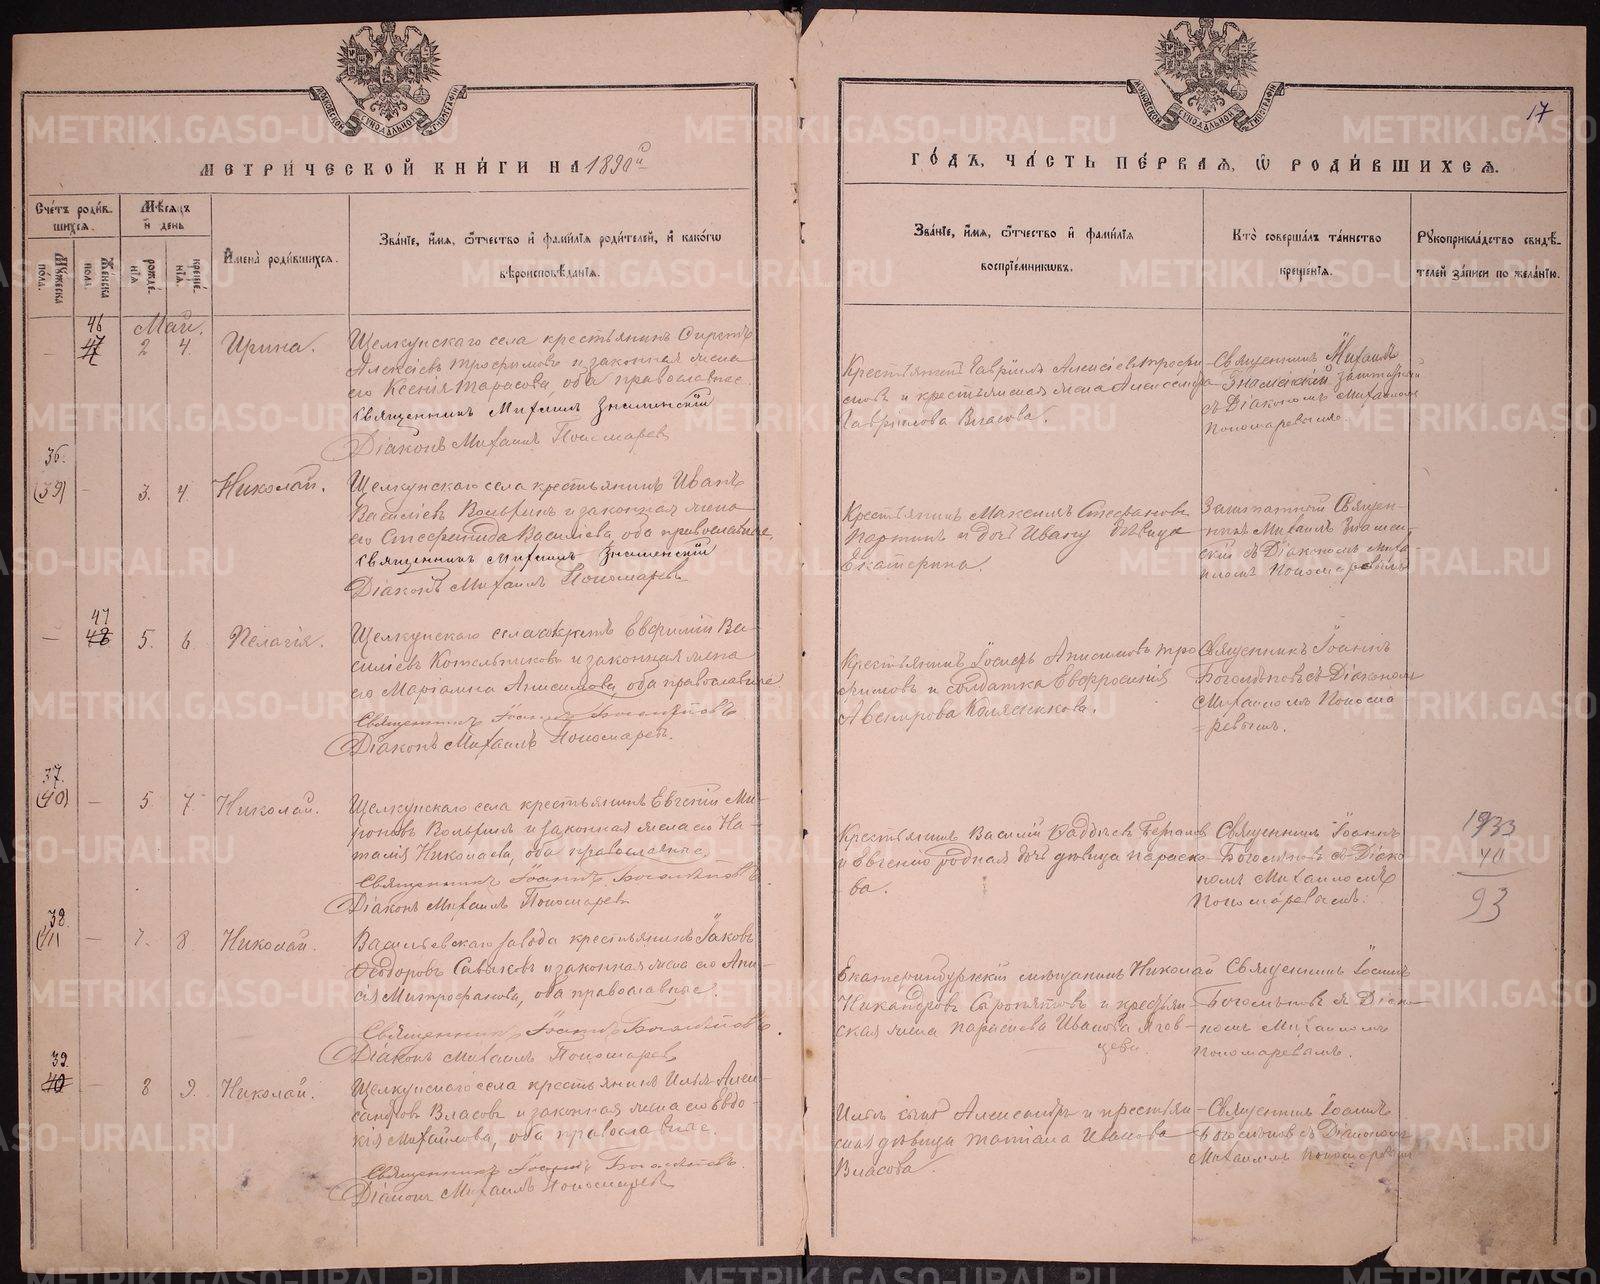 17
МЕТРИ́ЧЕСКОЙ КНИ́ГИ НА 1890й
ГО́ДЪ, ЧА́СТЬ ПЕ́РВАЯ, Ѽ РОДИ́ВШИХСЯ.
Сче́тъ роди́в-
шихся.
Мѣ́сяцъ
и҆ день
Му́жеска
по́ла.
Же́нска
по́ла.
рожде́-
нїя
креще́-
нїя.
И҆мена̀ роди́вшихся.
Зва́нїе, и҆́мя, ѻ҆́тчество и҆ фами́лїя роди́телей, и҆ како́гѡ
вѣроисповѣ́данїя.
Зва́нїе, и҆́мя, ѻ҆́тчество и҆ фами́лїя
воспрїе́мникѡвъ.
Кто̀ соверша́лъ та́инство
креще́нїя.
Рꙋкоприкла́дство свидѣ́-
телей за́писи по жела́нїю.
Май.
46
47
— 2 4. Ирина.
Щелкунскаго села крестьянинъ
Алексіевъ Трофимовъ и законная жена
его Ксенія Тарасова, оба православные.
Священникъ Михаилъ Знаменскій
Діаконъ Михаилъ Пономарев
Крестьянинъ Гавріилъ Алексіевъ Трофи-
мовъ и крестьянская жена Александра
Гавріилова Власова.
Священникъ Михаилъ
Знаменскій заштатный
съ Діакономъ Михаиломъ
Пономаревымъ
36.
(39) — 3. 4. Николай.
Щелкунскаго села крестьянинъ Иванъ
Василіевъ Вольхинъ и законная жена
его Стефанида Василіева, оба православные.
Священникъ Михаилъ Знаменскій
Діаконъ Михаилъ Пономаревъ
Крестьянинъ Максимъ Стефановъ
Партинъ и дочь Ивану дѣвица
Екатерина.
Заштатный Священ-
никъ Михаилъ Знамен-
скій съ Діакономъ Миха-
иломъ Пономаревымъ
47
48
— 5. 6. Пелагія.
Щелкунскаго села Евфимій Ва-
силіевъ Котельниковъ и законная жена
его Маріамна Анисимова, оба православные
Священникъ Іоаннъ Боголѣповъ
Діаконъ Михаилъ Пономаревъ.
Крестьянинъ Іосифъ Анисимовъ Тро-
фимовъ и солдатка Евфросинія
Авенирова
Священникъ Іоаннъ
Боголѣповъ съ Діакономъ
Михаиломъ Понома-
ревымъ.
37.
(40) — 5 7. Николай.
Щелкунскаго села крестьянинъ Евгеній Ми-
роновъ Вольхинъ и законная жена его На-
талія Николаева, оба православные.
Священникъ Іоаннъ Боголѣповъ
Діаконъ Михаилъ Пономарев
Крестьянинъ Василій
и Евгенію родная дочь дѣвица Параске-
ва.
Священникъ Іоаннъ
Боголѣповъ съ Діако-
номъ Михаиломъ
Пономаревымъ.
1933
40
93
38.
(41) — 7. 8. Николай.
Васильевскаго завода крестьянинъ Іаковъ
Ѳеодоровъ Савыковъ и законная жена его Ани-
сія Митрофанова, оба православные.
Священникъ Іоаннъ Боголѣповъ.
Діаконъ Михаилъ Пономарев
Екатеринбургскій мѣщанинъ Николай
Никандровъ и крестьян-
ская жена Параскева Иванова
Священникъ Іоаннъ
Боголѣповъ съ Діако-
номъ Михаиломъ
Пономаревымъ.
39.
40
— 8 9. Николай.
Щелкунскаго села крестьянинъ Илья Алек-
сандровъ Власовъ и законная жена его Евдо-
кія Михайлова, оба православные.
Священникъ Іоаннъ Боголѣповъ.
Діаконъ Михаилъ Пономаревъ
Ильи сынъ Александръ и крестьян-
ская дѣвица Татіана Иванова
Власова.
Священникъ Іоаннъ
Боголѣповъ съ Діакономъ
Михаиломъ Пономаревымъ
METRIKI.GASO-URAL.RU